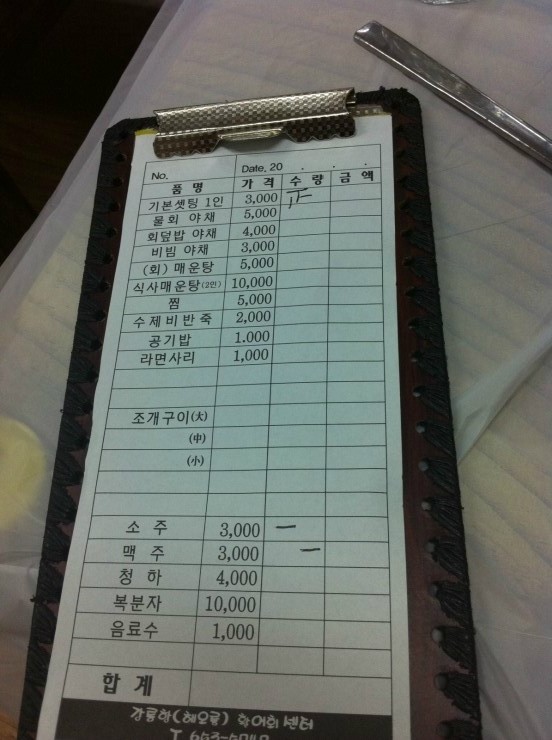 No. Date, 20 . . .
품 명 가 격 수 량 금 액
기본셋팅 1인 3,000 正
물회 야채 5,000
회덮밥 야채 4,000
비빔 야채 3,000
(회) 매운탕 5,000
식사매운탕(2인) 10,000
찜 5,000
수제비반죽 2,000
공기밥 1.000
라면사리 1,000
조개구이(大)
(中)
(小)
소 주 3,000 一
맥 주 3,000 一
청 하 4,000
복분자 10,000
음료수 1,000
합 계